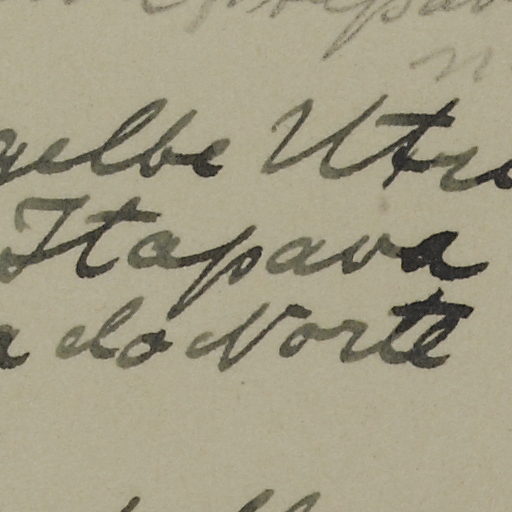 gelbe Utri
Itapava
a do Norte